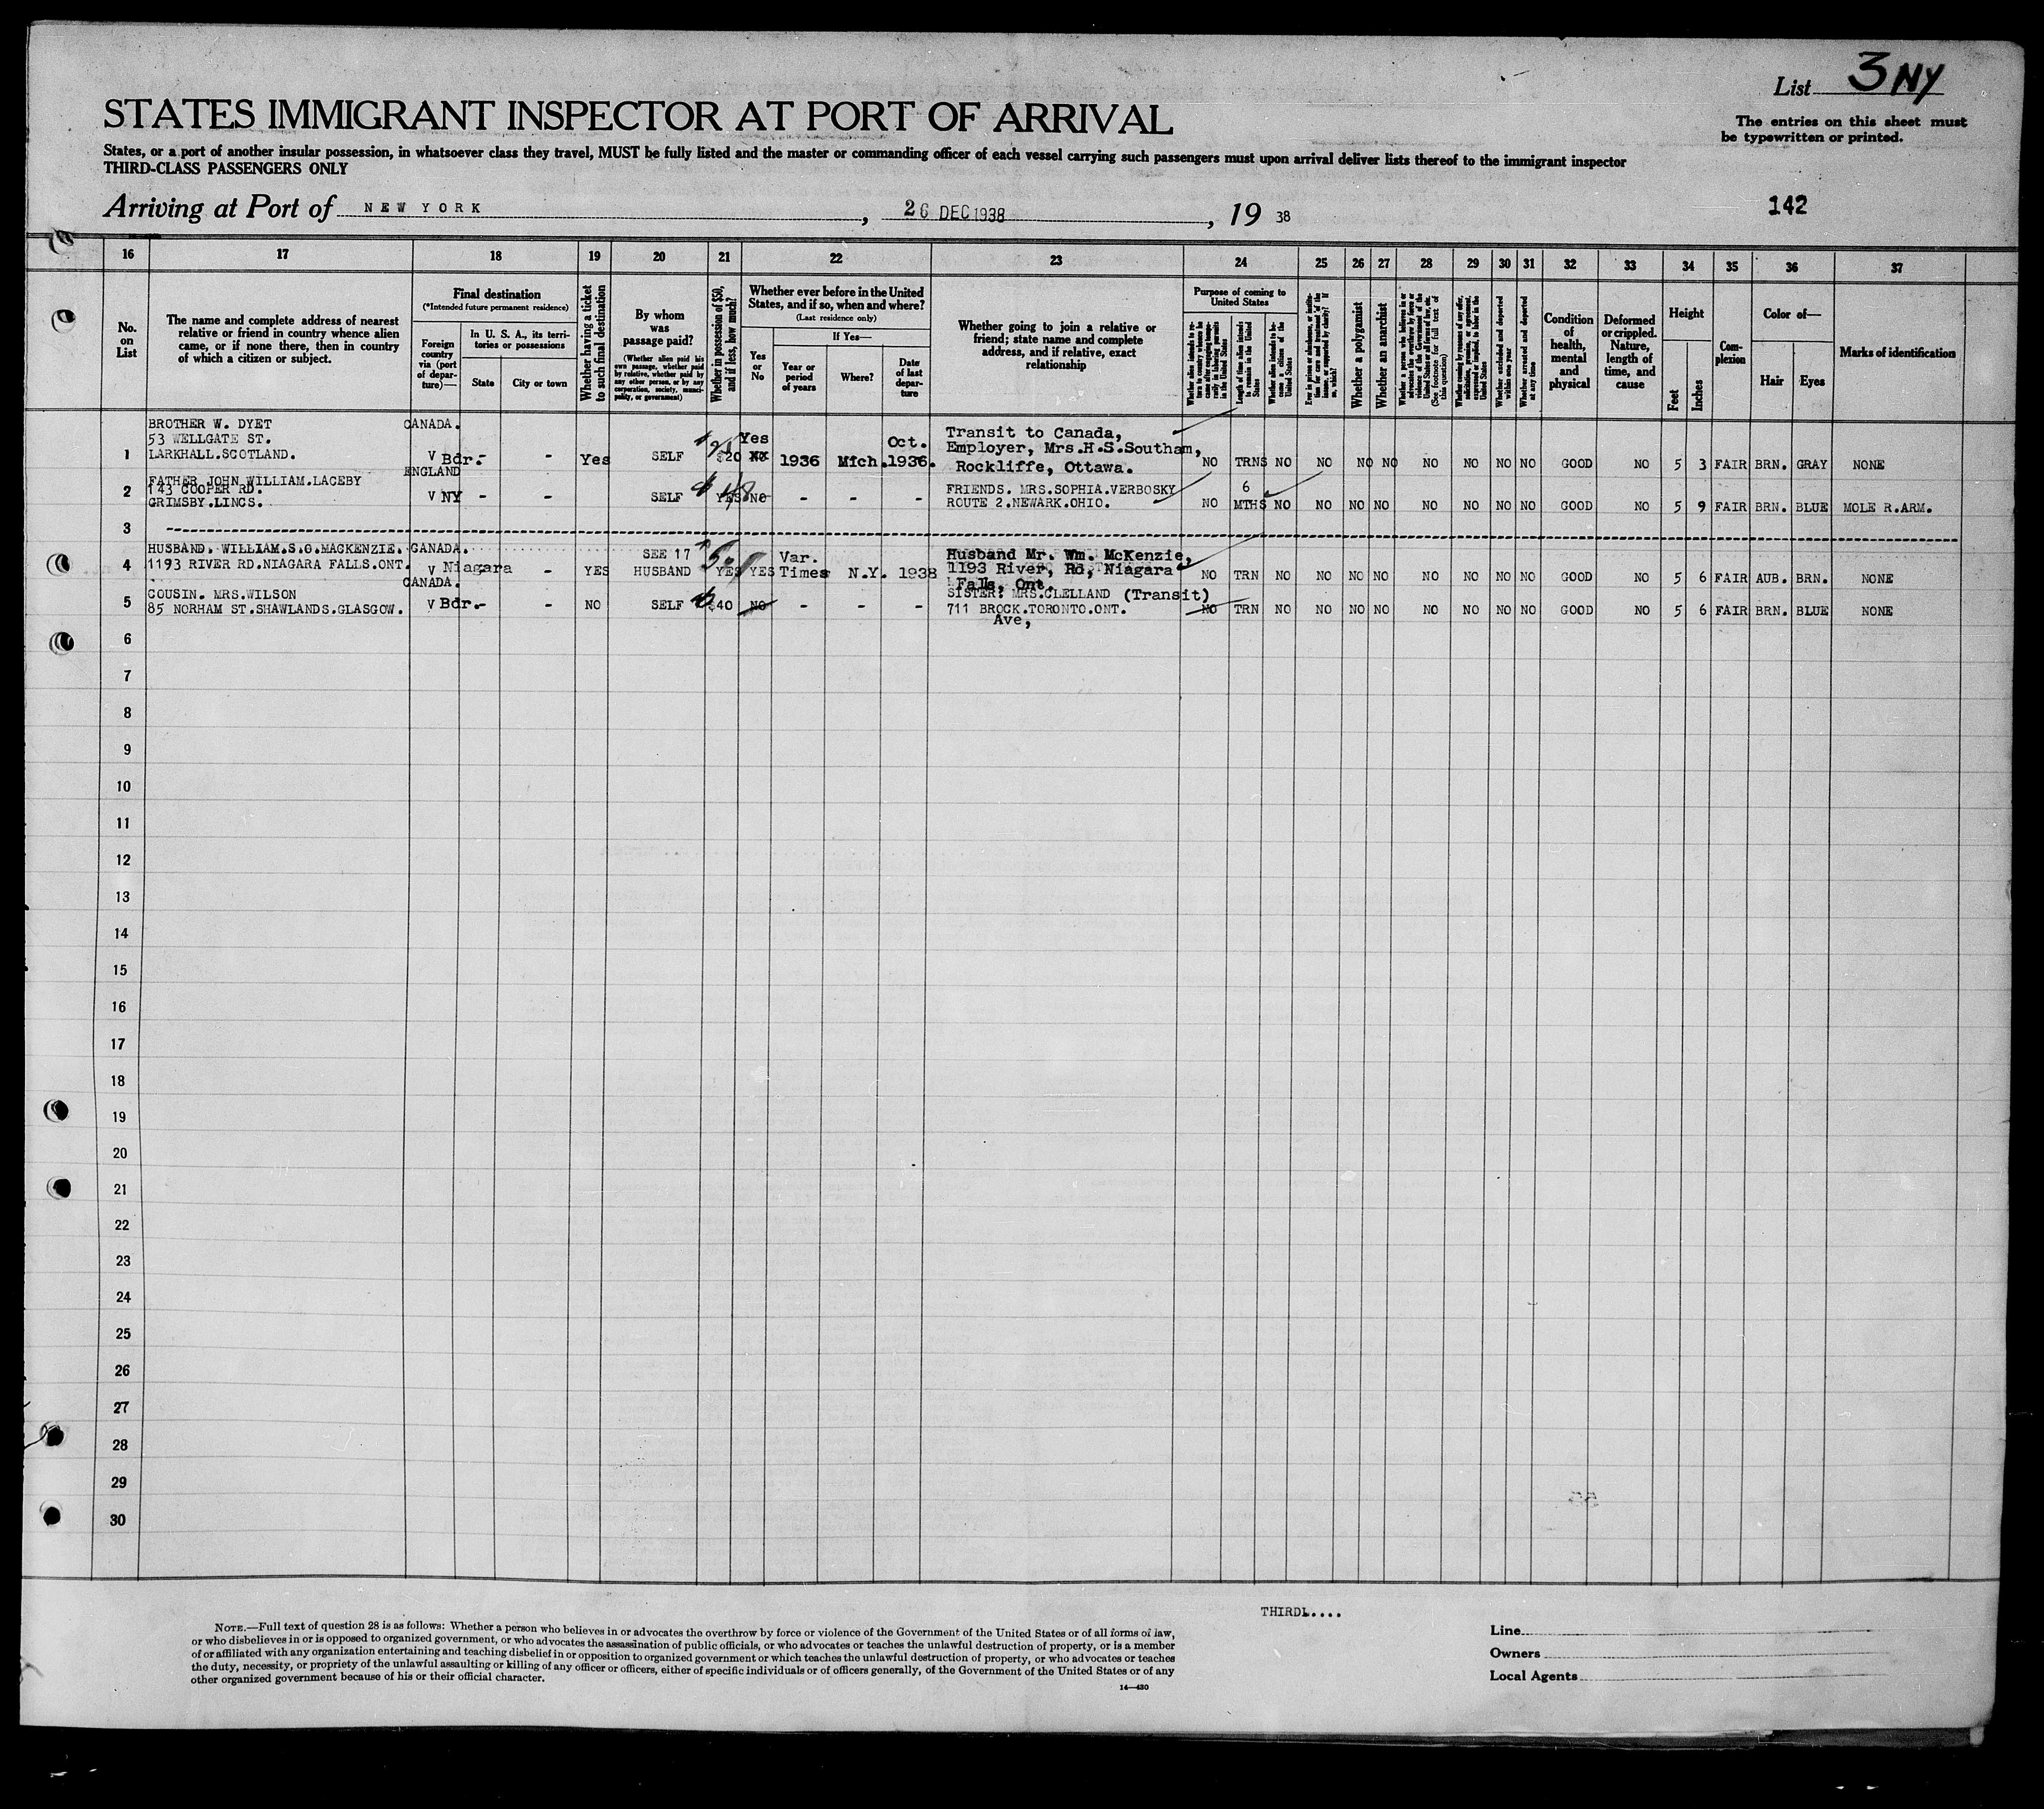 List 3 NY
STATES IMMIGRANT INSPECTOR AT PORT OF ARRIVAL
The entries on this sheet must
be typewritten or printed.
States, or a port of another insular possession, in whatsoever class they travel, MUST be fully listed and the master or commanding officer of each vessel carrying such passengers must upon arrival deliver lists thereof to the immigrant inspector
THIRD-CLASS PASSENGERS ONLY
Arriving at Port of NEW YORK, 26 DEC 1938, 19 38
142
16 17 18 19 20 21 22 23 24 25 26 27 28 29 30 31 32 33 34 35 36 37
No. on List
The name and complete address of nearest
relative or friend in country whence alien
came, or if none there, then in country
of which a citizen or subject.
Final destination
(*Intended future permanent residence)
Foreign country via (port of departure)—
In U. S. A., its territories or possessions
State
City or town
Whether having a ticket to such final destination
By whom was passage paid?
(Whether alien paid his own passage, whether paid by relative, whether paid by any other person, or by any corporation, society, municipality, or government)
Whether in possession of $50, and if less, how much?
Whether ever before in the United
States, and if so, when and where?
(Last residence only)
Yes or No
If Yes—
Year or period of years
Where?
Date of last departure
Whether going to join a relative or
friend; state name and complete
address, and if relative, exact
relationship
Purpose of coming to United States
Length of time alien intends to remain in the United States
Whether alien intends to become a citizen of the United States
Whether a polygamist
Whether an anarchist
(See footnote for full text of this question)
Whether excluded and deported within one year
Whether arrested and deported at any time
Condition of health, mental and physical
Deformed or crippled. Nature, length of time, and cause
Height
Feet
Inches
Complexion
Color of—
Hair
Eyes
Marks of identification
BROTHER W. DYET CANADA.
53 WELLGATE ST. Yes Oct. Transit to Canada,
1 LARKHALL.SCOTLAND. V Bdr. - - Yes SELF $20 NO 1936 Mich. 1936. Employer, Mrs.H.S.Southam,
Rockliffe, Ottawa. NO TRNS NO NO NO NO NO NO NO NO GOOD NO 5 3 FAIR BRN. GRAY NONE
ENGLAND
FATHER JOHN WILLIAM.LACEBY
2 143 COOPER RD. V NY - - SELF YES NO - - - FRIENDS. MRS.SOPHIA.VERBOSKY 6
GRIMSBY.LINCS. ROUTE 2.NEWARK.OHIO. NO MTHS NO NO NO NO NO NO NO NO GOOD NO 5 9 FAIR BRN. BLUE MOLE R.ARM.
3
HUSBAND. WILLIAM.S.O.MACKENZIE. CANADA. SEE 17 Var. Husband Mr. Wm. McKenzie,
4 1193 RIVER RD.NIAGARA FALLS.ONT. V Niagara - YES HUSBAND YES YES Times N.Y. 1938 1193 River, Rd, Niagara
Falls, Ont. NO TRN NO NO NO NO NO NO NO NO GOOD NO 5 6 FAIR AUB. BRN. NONE
CANADA.
COUSIN. MRS.WILSON SISTER. MRS.CLELLAND (Transit)
5 85 NORHAM ST.SHAWLANDS.GLASGOW. V Bdr. - - NO SELF $40 NO - - - 711 BROCK.TORONTO.ONT. NO TRN NO NO NO NO NO NO NO NO GOOD NO 5 6 FAIR BRN. BLUE NONE
Ave,
6
7
8
9
10
11
12
13
14
15
16
17
18
19
20
21
22
23
24
25
26
27
28
29
30
THIRDL....
NOTE.—Full text of question 28 is as follows: Whether a person who believes in or advocates the overthrow by force or violence of the Government of the United States or of all forms of law,
or who disbelieves in or is opposed to organized government, or who advocates the assassination of public officials, or who advocates or teaches the unlawful destruction of property, or is a member
of or affiliated with any organization entertaining and teaching disbelief in or opposition to organized government or which teaches the unlawful destruction of property, or who advocates or teaches
the duty, necessity, or propriety of the unlawful assaulting or killing of any officer or officers, either of specific individuals or of officers generally, of the Government of the United States or of any
other organized government because of his or their official character.
14—430
Line
Owners
Local Agents